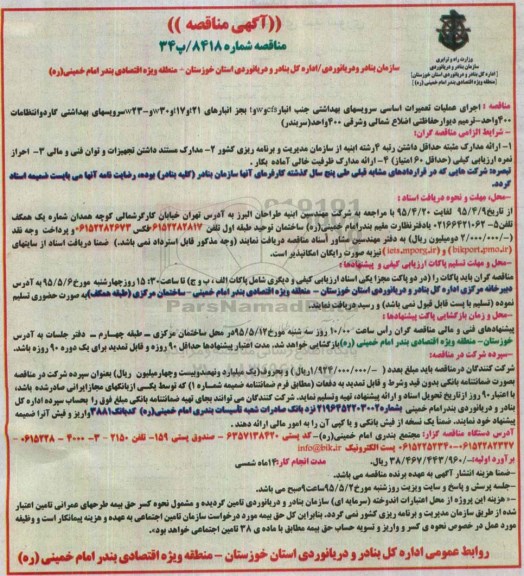 ((آگهی مناقصه ))
مناقصه شماره ۸۴۱۸/پ۳۴
وزارت راه و ترابری
سازمان بنادر و دریانوردی
(اداره کل بنادر و دریانوردی استان خوزستان)
(منطقه ویژه اقتصادی بندر امام خمینی (ره
سازمان بنادر ودریانوردی/اداره کل بنادر و دریانوردی استان خوزستان - منطقه ویژه اقتصادی بندر امام خمینی(ره)
مناقصه : اجرای عملیات تعمیرات اساسی سرویسهای بهداشتی جنب انبار
بجز انبارهای ۲۱و۱۷و۳۰و
سرویسهای بهداشتی گاردوانتظامات
۴۰۰واحد-ترمیم دیوارحفاظتی اضلاع شمالی وشرقی ۴۰۰واحد(سربندر)
- شرایط الزامی مناقصه گران:
۱- ارائه مدارک مثبته حداقل داشتن رتبه ۴رشته ابنیه از سازمان مدیریت و برنامه ریزی کشور ۲- مدارک مستند داشتن تجهیزات و توان فنی و مالی ۳- احراز
نمره ارزیابی کیفی (حداقل ۶۰امتیاز) ۴- ارائه مدارک ظرفیت خالی آماده بکار .
تبصره: شرکت هایی که در قراردادهای مشابه قبلی طی پنج سال گذشته کارفرمای آنها سازمان بنادر (کلیه بنادر) بوده، رضایت نامه آنها می بایست ضمیمه اسناد
گردد.
-محل، مهلت و نحوه دریافت اسناد :
از تاریخ۹۵/۴/۹ لغایت ۹۵/۴/۲۰ با مراجعه به شرکت مهندسین ابنیه طراحان البرز به آدرس تهران خیابان کارگرشمالی کوچه همدان شماره یک همکف
تلفن۵-۰۲۱۶۶۴۲۱۰۶۲ یادفترنظارت مقیم بندرامام خمینی(ره) ساختمان توحید طبقه اول تلفن ۰۶۱۵۲۲۸۲۸۱۷فکس ۰۶۱۵۲۲۸۲۶۷۳ و پرداخت وجه نقد
(۲/۰۰۰/۰۰۰) دومیلیون ریال) به دفتر مهندسین مشاور اسناد مناقصه دریافت نمایند (وجه مذکور قابل استرداد نمی باشد.) ضمنا دریافت اسناد از سایتهای
(bikport.pmo.ir) و (iets.mporg.ir) نیزبه صورت رایگان امکانپذیر است.
-محل و مهلت تسلیم پاکات ارزیابی کیفی و پیشنهادها :
مناقصه گران باید پاکات را (در دو پاکت مجزا یکی اسناد ارزیابی کیفی و دیگری شامل پاکات الف ، ب و ج) تا ساعت ۱۵:۳۰روزچهارشنبه مورخ۹۵/۵/۶ به آدرس
دبیرخانه مرکزی اداره کل بنادر و دریانوردی استان خوزستان - منطقه ویژه اقتصادی بندر امام خمینی - ساختمان مرکزی (طبقه همکف)به صورت حضوری تسلیم
نموده (تسلیم با پست قابل قبول نمی باشد) و رسید دریافت نمایند.
-محل و زمان بازگشایی پاکت پیشنهادها :
پیشنهادهای فنی و مالی مناقصه گران رأس ساعت ۱۰/۰۰ روز سه شنبه مورخ ۹۵/۵/۱۲در محل ساختمان مرکزی ـ طبقه چهارم ـ دفتر جلسات به آدرس
خوزستان- منطقه ویژه اقتصادی بندر امام خمینی (ره) بازگشایی خواهد شد. مدت اعتبار پیشنهادها حداقل ۹۰ روزه و قابل تمدید برای یک دوره ۹۰ روزه باشد.
-سپرده شرکت در مناقصه:
شرکت کنندگان درمناقصه باید مبلغ بعدد ( ۱/۹۲۴/۰۰۰/۰۰۰/-ریال) و بحروف(یک میلیارد ونهصدوبیست وچهارمیلیون ریال) بعنوان سپرده شرکت در مناقصه
بصورت ضمانتنامه بانکی بدون قید وشرط و قابل تمدید به دفعات (مطابق فرم ضمانتنامه ضمیمه شماره ۱) که توسط یکسی ازبانکهای مجازایرانی صادرشده باشد،
با اعتبار ۹۰ روز ازتاریخ تحویل اسناد و ارائه پیشنهاد، تهیه وتسلیم نماید. شرکت کنندگان می توانند بجای تهیه ضمانتنامه بانکی مبلغ فوق را بحساب سپرده اداره کل
بنادر و دریانوردی بندرامام خمینی بشماره۲۱۷۹۶۴۵۲۲۰۳۰۰۲ نزد بانک صادرات شعبه تأسیسات بندری امام خمینی(ره) کدبانک۳۸۸۱ واریز و فیش آنرا ضمیمه
پیشنهاد خود نمایند. ضمناً یک نسخه از فیش بانکی و یا کپی آن را به امور مالی ارائه دهند.
آدرس دستگاه مناقصه گزار: مجتمع بندری امام خمینی(ره)- کد پستی ۶۳۵۷۱۳۸۴۲۰ - صندوق پستی ۱۵۹- تلفن ۲۱۵۰ - ۳- ۴۰۰۰ - ۰۶۱۵۲۲۸ -
۰۶۱۵۲۲۸۲۳۲۷-۰۶۱۵۲۲۵۲۳۴۰ پست الکترونیک info@bik.ir
برآورد اولیه: -/۳۸/۴۶۷/۴۴۳/۹۶۰ ریال. مدت انجام کار:۱۴ماه شمسی
-ضمنا هزینه انتشار آگهی به عهده برنده مناقصه می باشد.
-جلسه پرسش و پاسخ و سایت ویزیت روزشنبه مورخ۹۵/۵/۲ساعت۹صبح می باشد.
-: هزینه این پروژه از محل اعتبارات اندوخته (سرمایه ای) سازمان بنادر و دریانوردی تامین گردیده و مشمول نحوه کسر حق بیمه طرحهای عمرانی تامین اعتبار
شده از طریق سازمان مدیریت و برنامه ریزی کشور نمی گردد. بنابراین کل حق بیمه مورد درخواست سازمان تامین اجتماعی به عهده و هزینه پیمانکار است و وظیفه
مورد عمل در خصوص نحوه ی کسر و واریز و تسویه حساب حق بیمه مطابق با ماده ی ۳۸ تامین اجتماعی خواهد بود».
روابط عمومی اداره کل بنادر و دریانوردی استان خوزستان - منطقه ویژه اقتصادی بندر امام خمینی (ره)